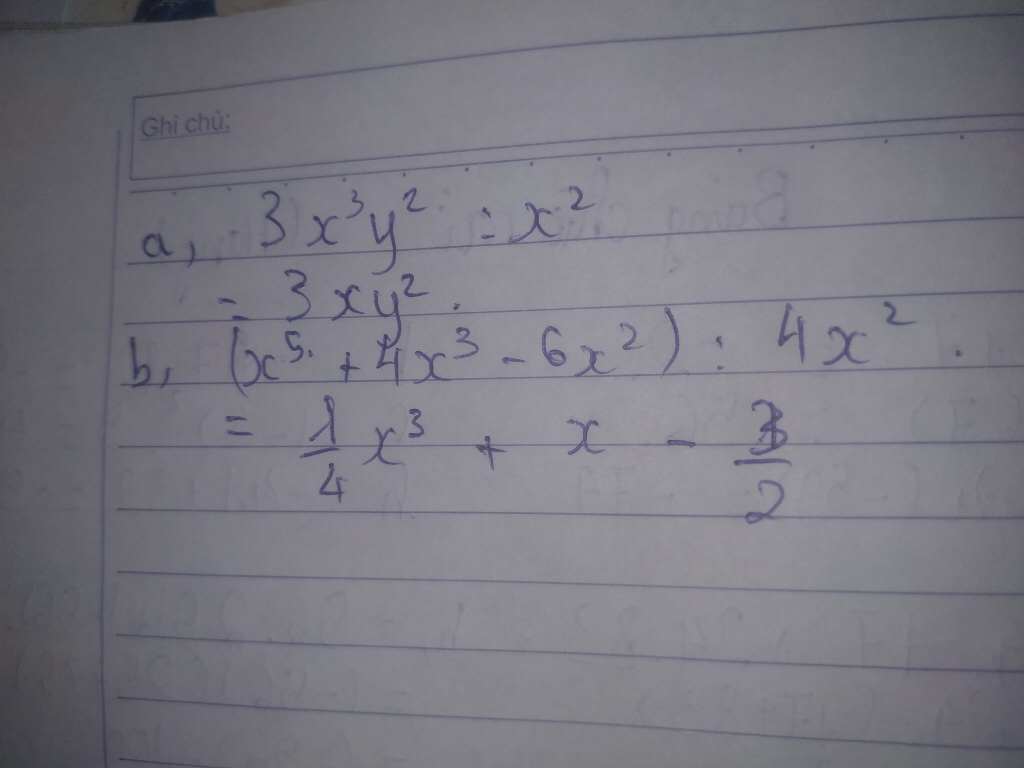 Ghi chú:
a, 3x³y² : x²
= 3xy².
b, (x⁵ + 4x³ - 6x²) : 4x².
= 1/4 x³ + x - 3/2